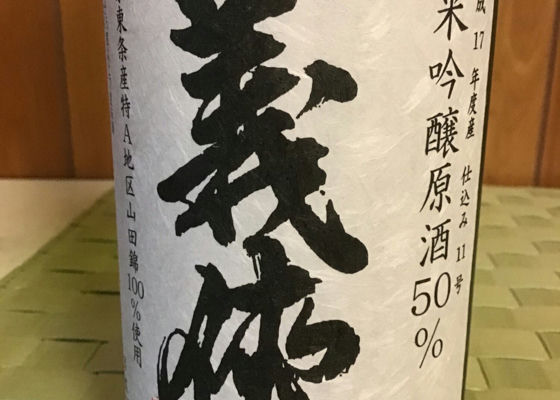 成 17 年度産 仕込み 11 号
米吟醸原酒50%
義侠
東条産特A地区山田錦100%使用